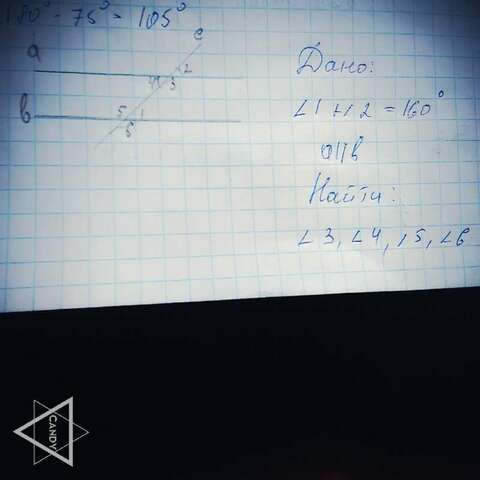 180° - 75° = 105°
a
c
2
4
3
b
5
1
6
Дано:
∠1 + ∠2 = 160°
a||b
Найти:
∠3, ∠4, ∠5, ∠6
CANDY